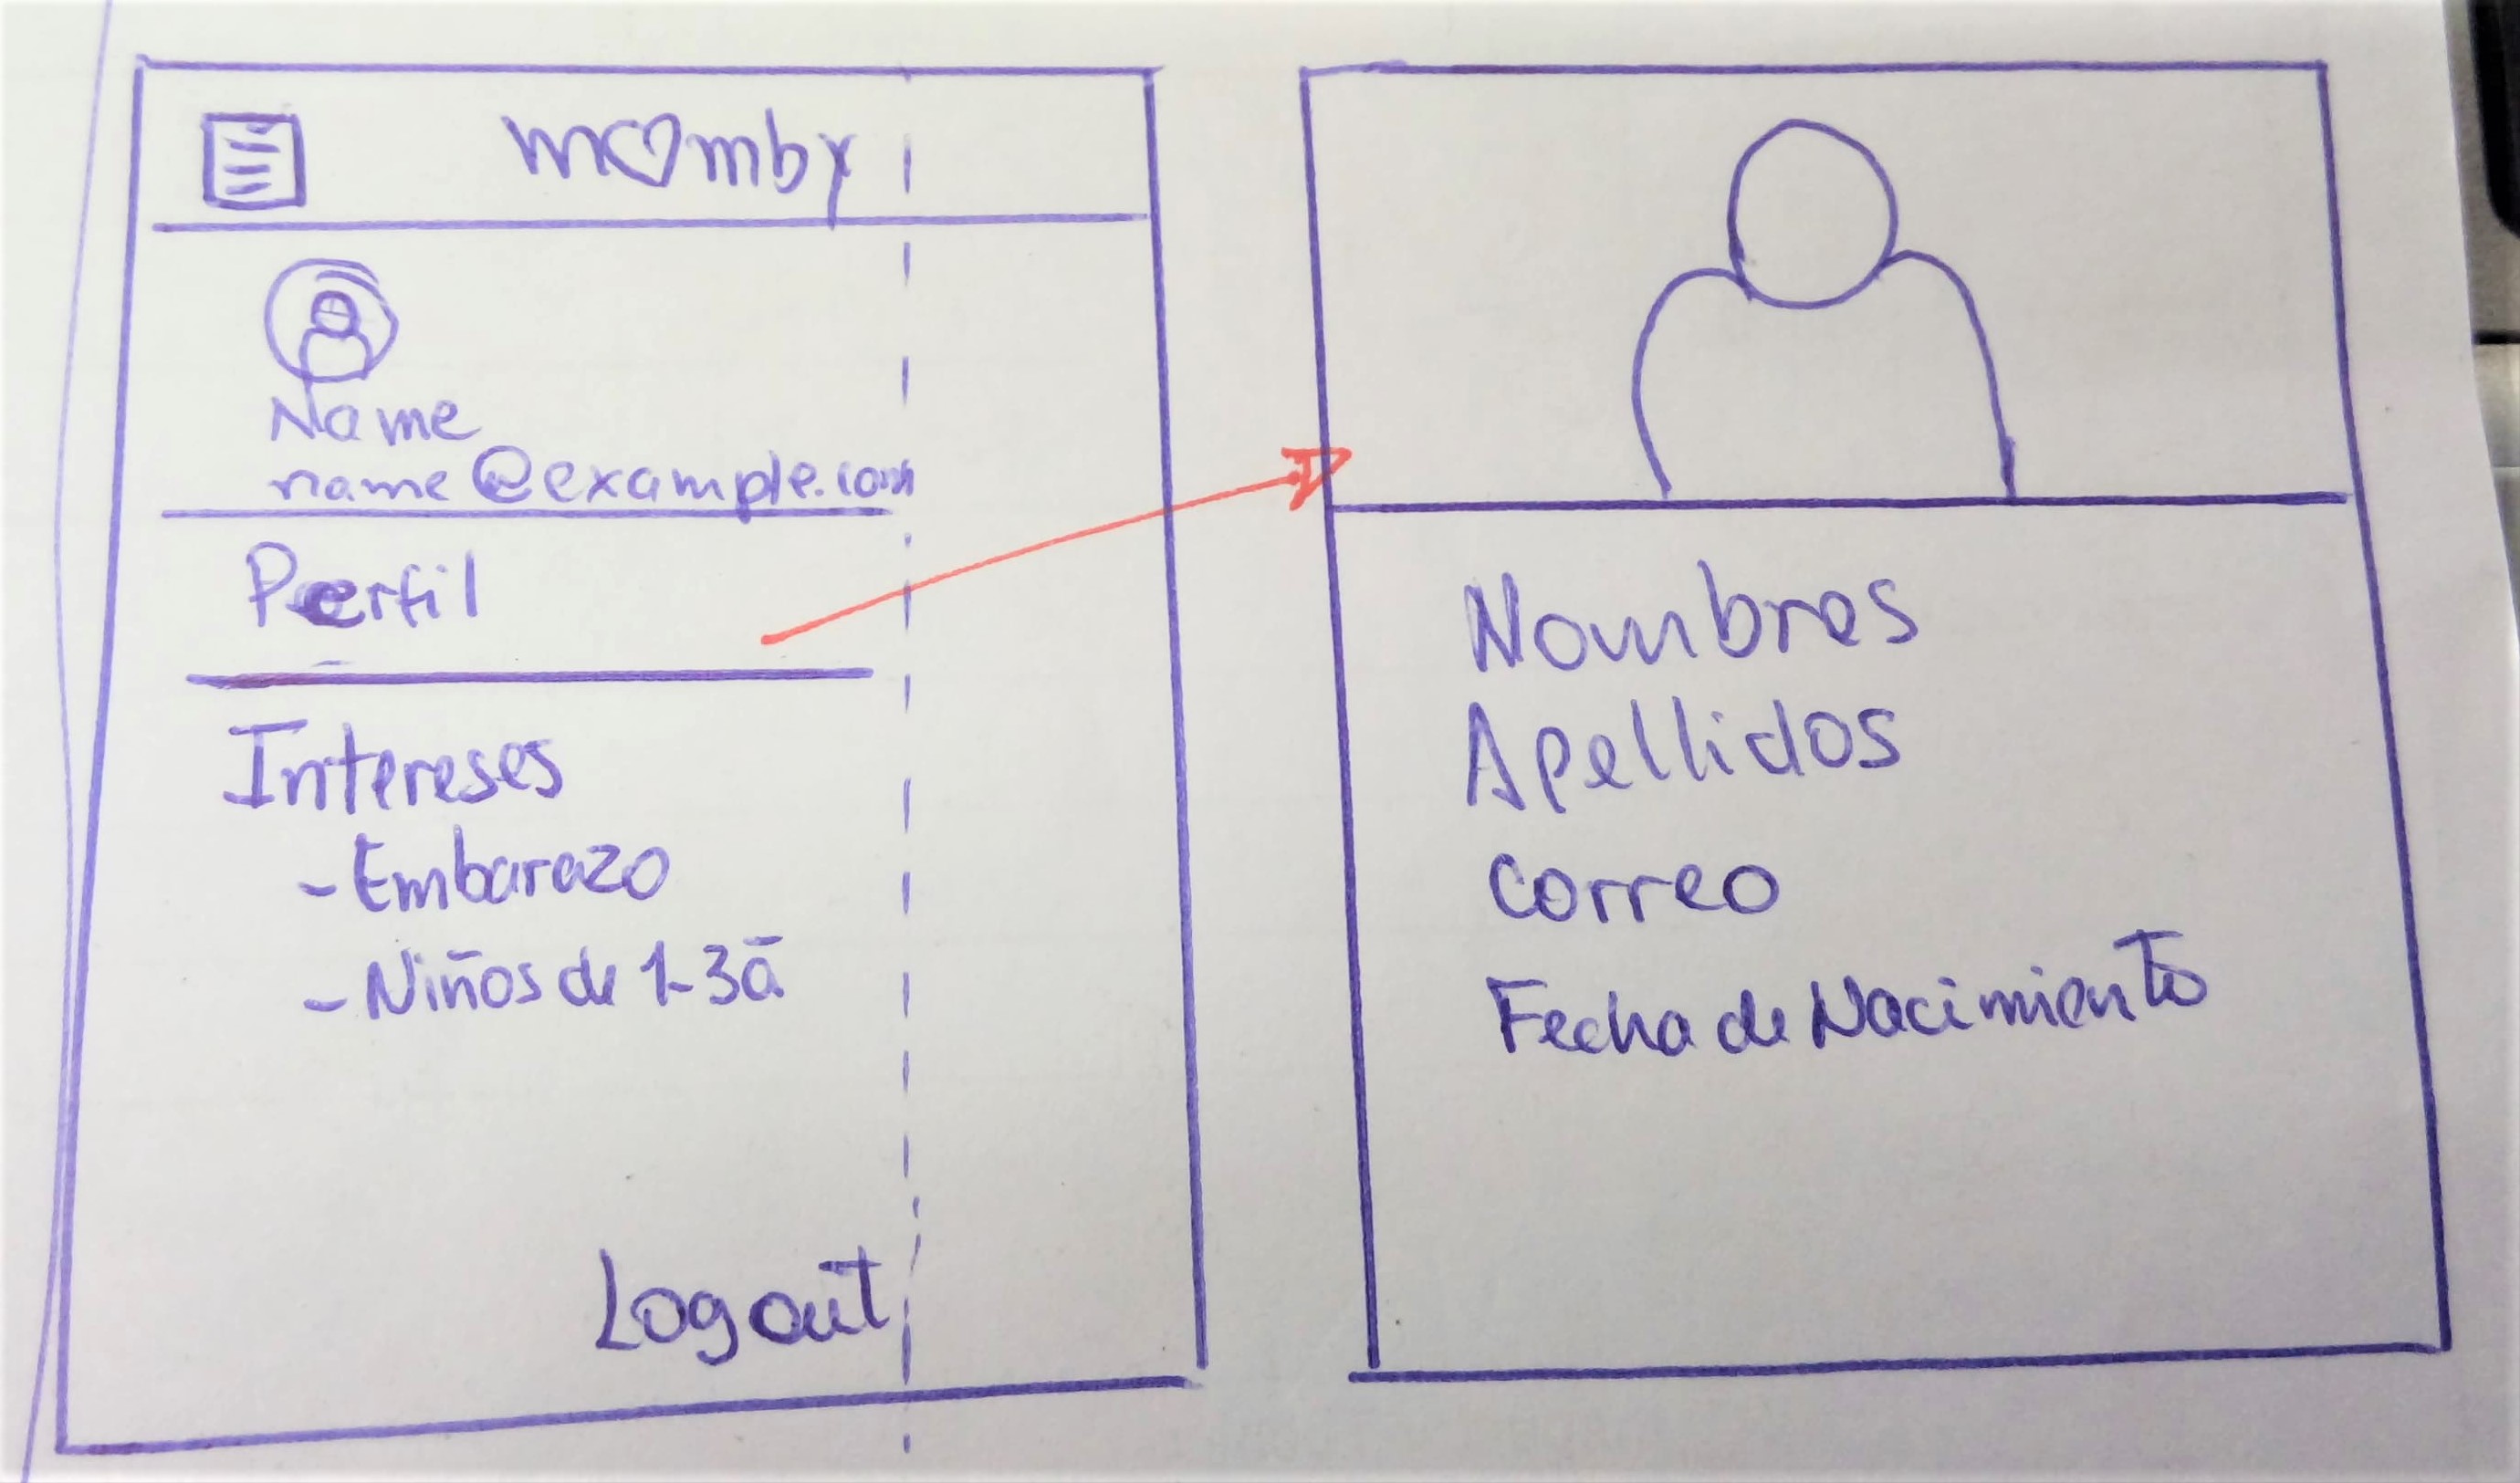 momby
Name
name@example.com
Perfil
Intereses
- Embarazo
- Niños de 1-3 a
Logout
Nombres
Apellidos
Correo
Fecha de Nacimiento